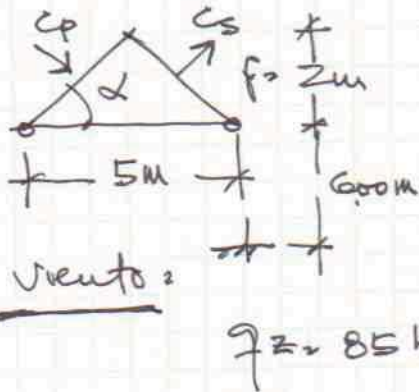 Cp
Cs
α
f= 2m
5m
6,00m
Viento:
qz= 85